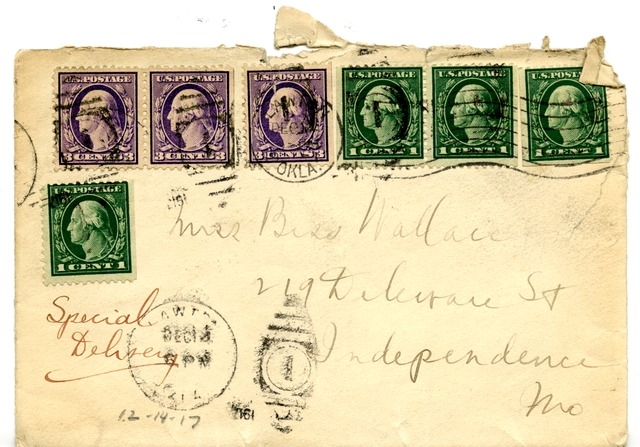 U.S.POSTAGE U.S.POSTAGE U.S.POSTAGE U.S.POSTAGE U.S.POSTAGE U.S.POSTAGE
3 CENTS 3 3 CENTS 3 3 CENTS 3 1 CENT 1 1 CENT 1 1 CENT 1
OKLA.
U.S.POSTAGE
1 CENT 1
Miss Bess Wallace
219 Delaware St
Special
Delivery
Independence
Mo
LAWTON
DEC
PM
OKLA
1
12-14-17